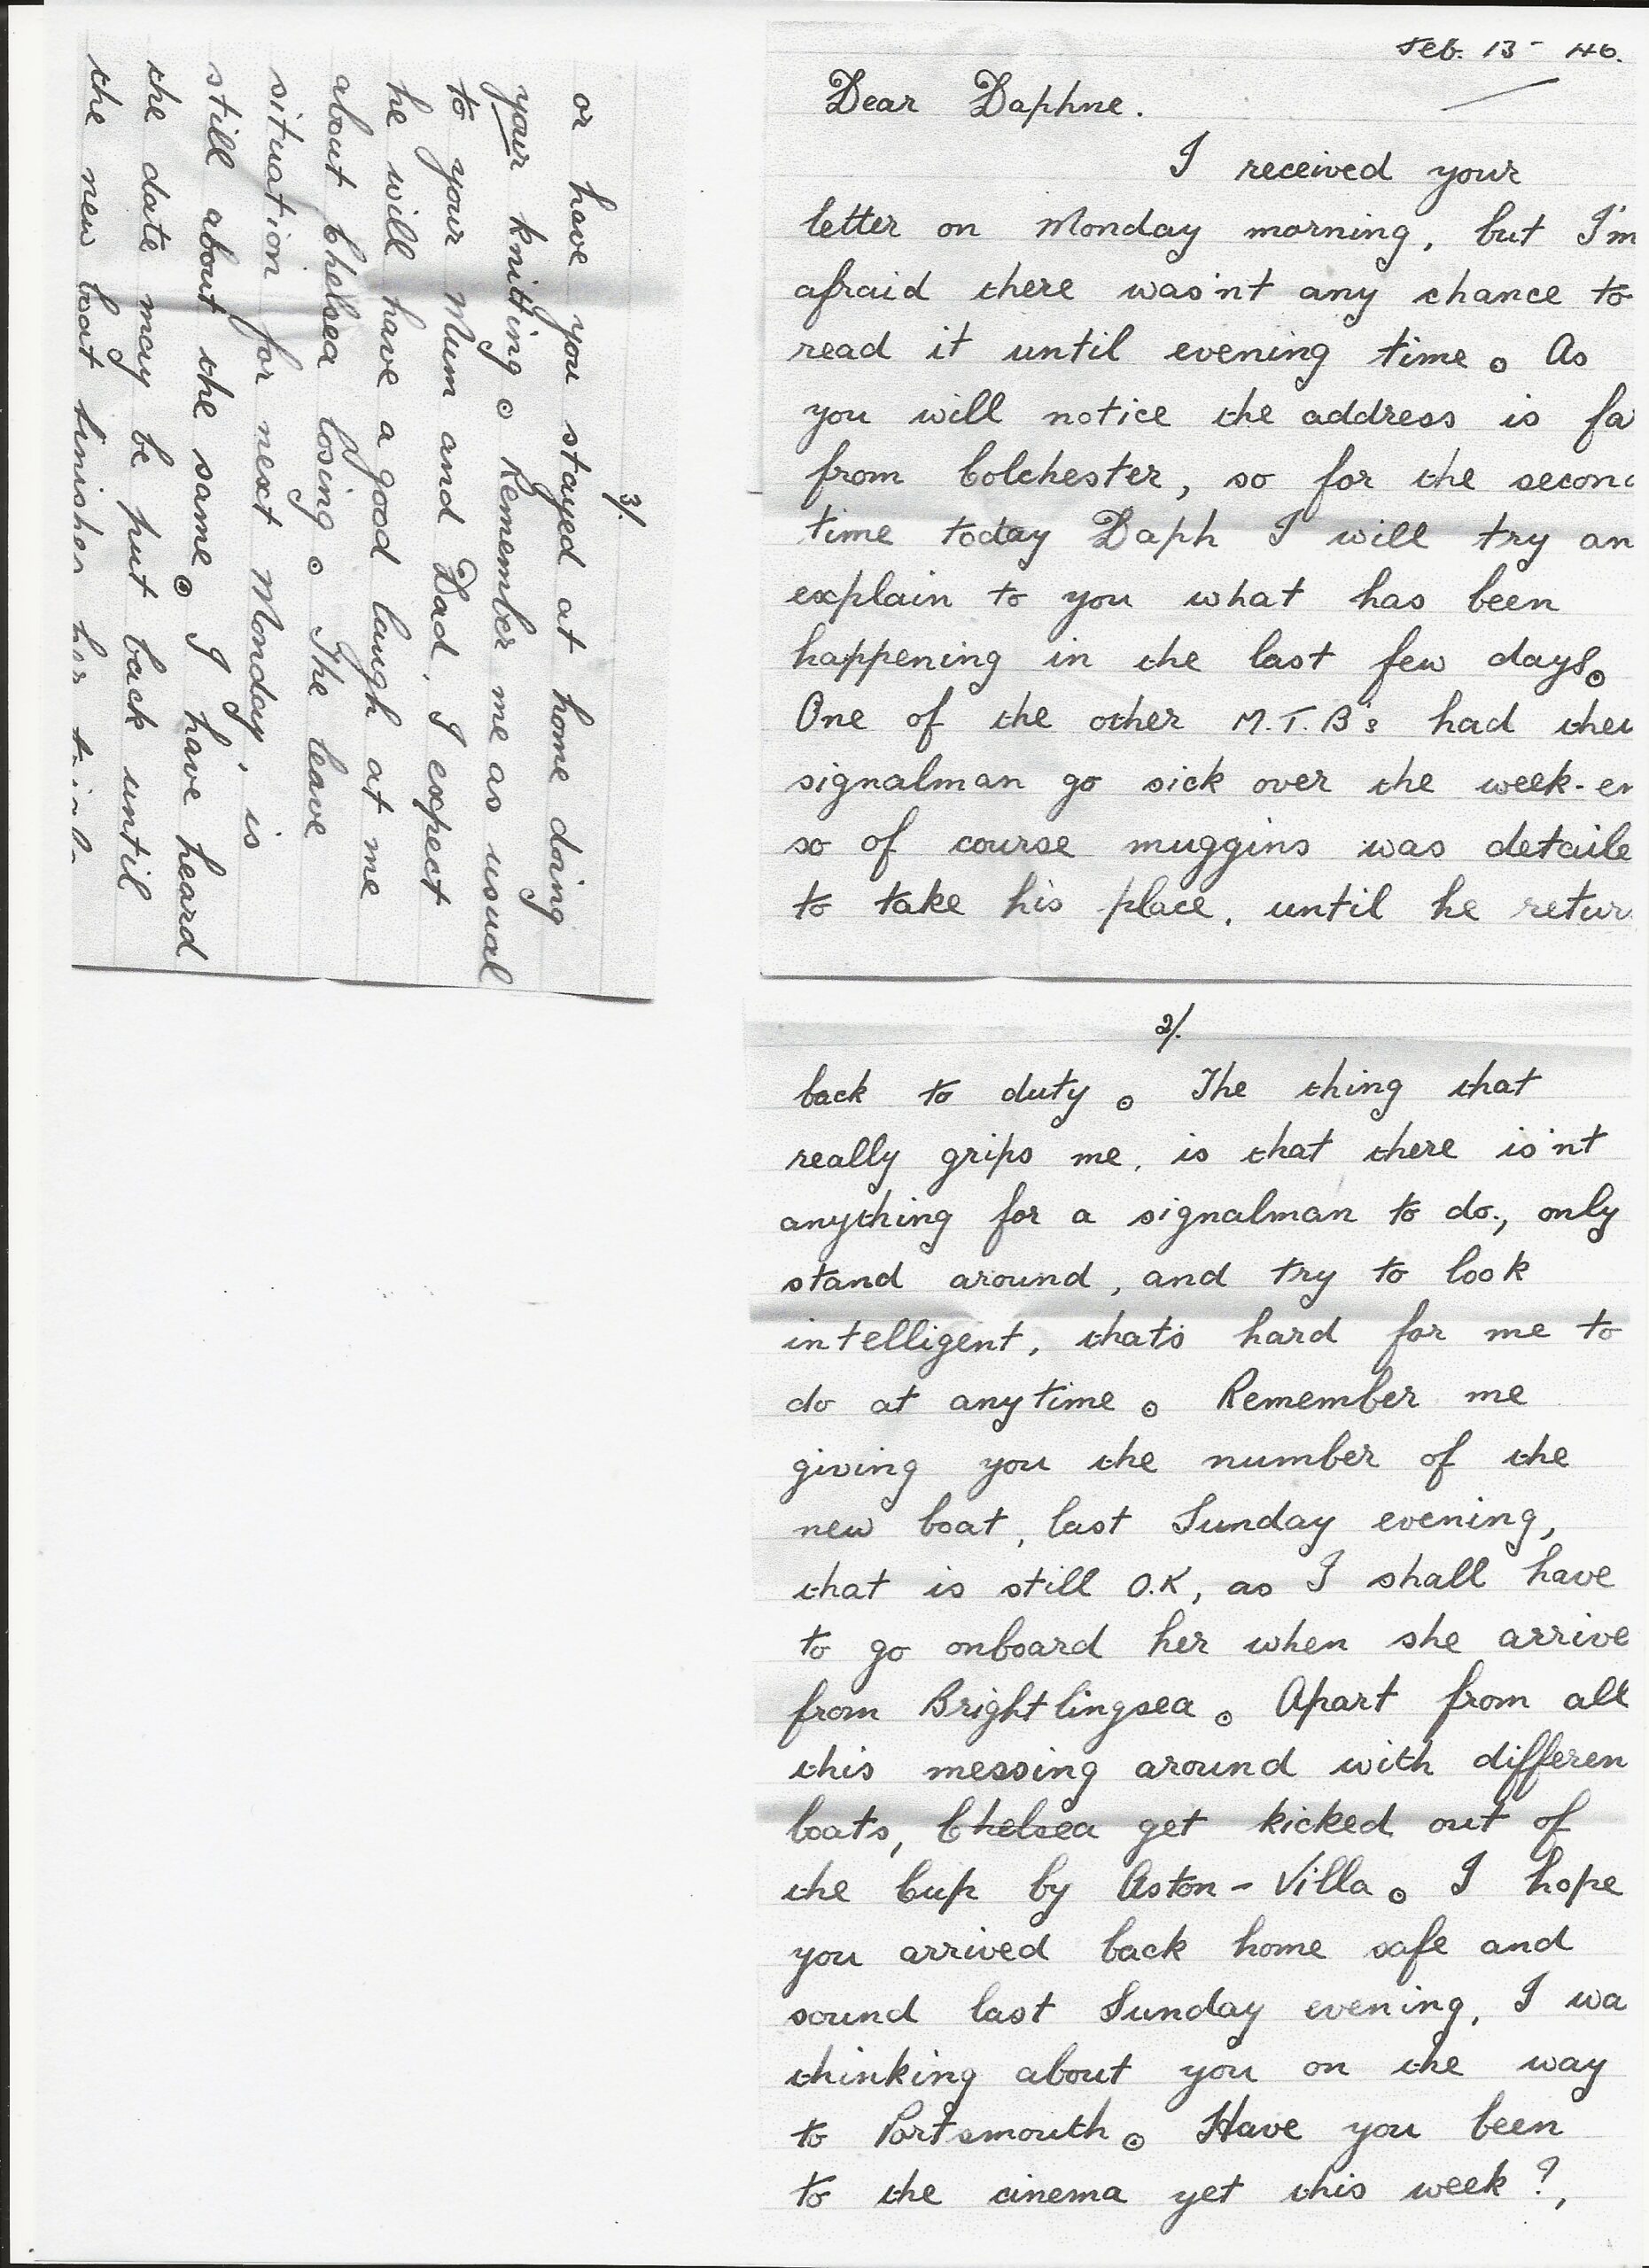 Feb. 13 - 46.
Dear Daphne.
I received your
letter on Monday morning, but I'm
afraid there was'nt any chance to
read it until evening time. As
you will notice the address is fa
from Colchester, so for the secon
time today Daph I will try an
explain to you what has been
happening in the last few days.
One of the other M.T.B's had thei
signalman go sick over the week-en
so of course muggins was detaile
to take his place, until he retur
2/.
back to duty. The thing that
really grips me, is that there is'nt
anything for a signalman to do., only
stand around, and try to look
intelligent, thats hard for me to
do at anytime. Remember me
giving you the number of the
new boat, last Sunday evening,
that is still O.K, as I shall have
to go onboard her when she arrive
from Brightlingsea. Apart from all
this messing around with differen
boats, Chelsea get kicked out of
the Cup by Aston-Villa. I hope
you arrived back home safe and
sound last Sunday evening, I wa
thinking about you on the way
to Portsmouth. Have you been
to the cinema yet this week?,
3/.
or have you stayed at home doing
your knitting. Remember me as usual
to your Mum and Dad, I expect
he will have a good laugh at me
about Chelsea losing. The leave
situation for next Monday, is
still about the same. I have heard
the date may be put back until
the new boat finishes her